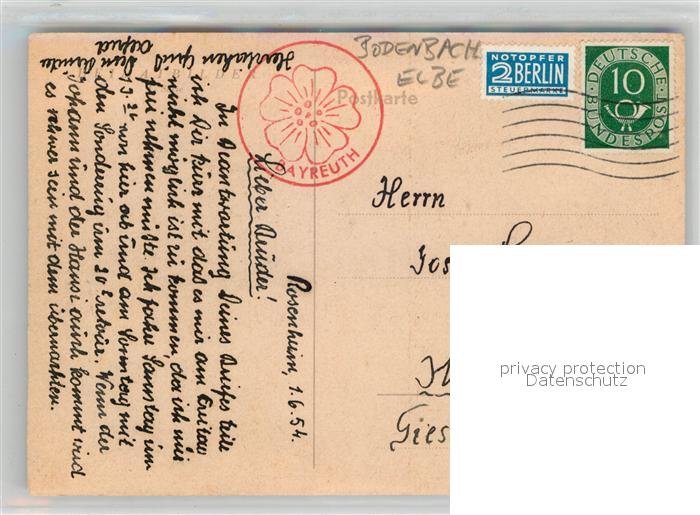 BODENBACH
ELBE
NOTOPFER
2 BERLIN
STEUERMARKE
DEUTSCHE
10
BUNDESPOST
Postkarte
BAYREUTH
Rosenheim, 1.6.54.
Lieber Bruder!
In Beantwortung Deines Briefes teile
ich Dir kurz mit das es mir am Freitag
nicht möglich ist zu kommen, da ich mir
frei nehmen müßte. Ich fahre Samstag um
von hier ab und am Sonntag mit
den Sonderzug um 20 retour. Wenn der
Johann und der Hansi auch kommt wird
es schwer sein mit dem übernachten.
Herzlichen Gruß
Dein Bruder
Alfred
Herrn
Jos
H
Gies
privacy protection
Datenschutz